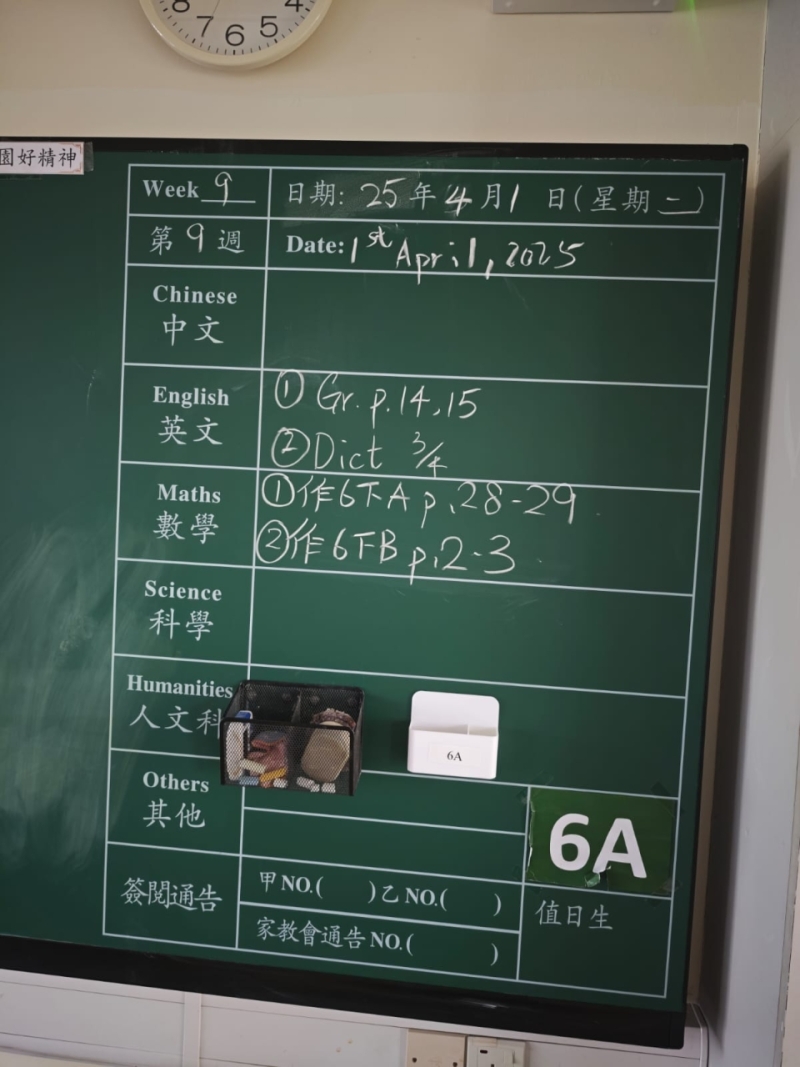 4
7 6 5
園好精神
Week 9
日期: 25年4月1日(星期二)
第9週
Date: 1st April, 2025
Chinese
中文
English
英文
① Gr. p.14,15
② Dict 3/4
Maths
數學
①作6下A p.28-29
②作6下B p.2-3
Science
科學
Humanities
人文科
6A
Others
其他
6A
簽閱通告
甲NO.( )乙NO.( )
家教會通告NO.( )
值日生